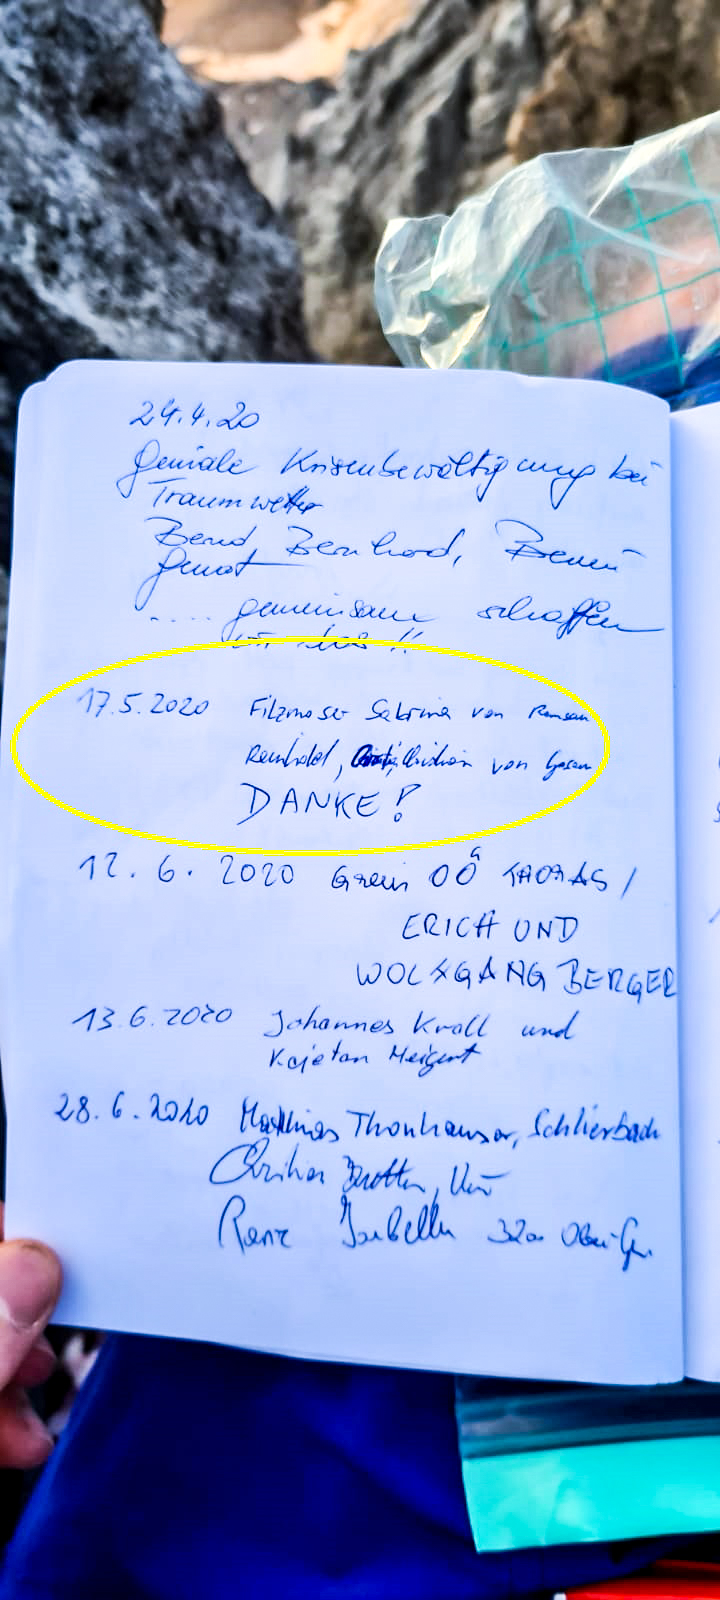 24.4.20
Geniale Krisenbewältigung bei
Traumwetter
Bernd Bernhard,
.... gemeinsam schaffen
wir das !!
17.5.2020 Filzmoser Sabrina von
Reinhold, von
DANKE!
12. 6. 2020 Grein OÖ THOMAS /
ERICH UND
WOLFGANG BERGER
13.6.2020 Johannes Kroll und
Kajetan
28.6.2020 Matthias Thonhauser, Schlierbach
Christian
Isabella